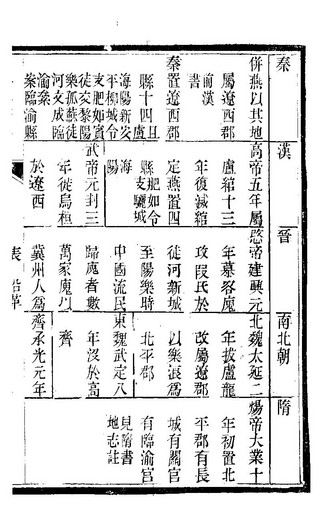 秦
併燕以其地
屬遼西郡
前漢
秦置遼西郡
縣十四 且
海陽 新安
平 柳城 令
支 肥如 賓
徒 交黎 陽
樂 狐蘇 徒
河 文成 臨
渝 絫
絫臨渝縣
漢
高帝五年屬
盧綰十三
年後減綰
定燕置四
縣 肥如 令
支 驪城
海陽
武帝元封三
年徙烏桓
於遼西
晉
愍帝建興元
年慕容廆
攻段氏於
徒河新城
至陽樂時
中國流民
歸廆者數
萬家廆以
冀州人爲
南北朝
北魏太延二
年拔盧龍
改屬遼郡
以樂浪爲
北平郡
東魏武定八
年沒於高
齊
齊承光元年
隋
煬帝大業十
年初置北
平郡有長
城有關官
有臨渝宮
見隋書
地志註
表 沿革